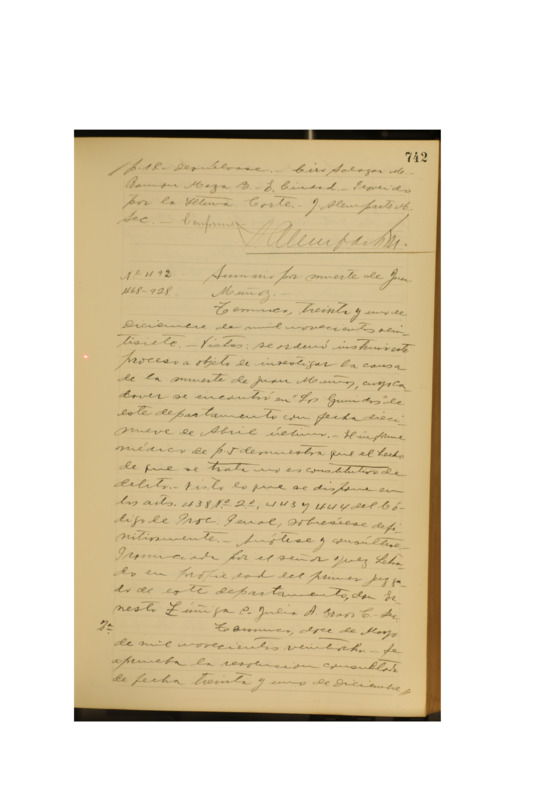 742
f. 18. Devuélvase. - Ciro Salazar M.-
Ramon Meza B. - E. Ciudad. - Proveido
por la Iltma Corte. - J. Alemparte M.
Sec. - Conforme
Nº 1192 Sumario por muerte de Juan
1168-928. Muñoz. -
Temuco, treinta y uno de
Diciembre de mil novecientos vein-
tisiete. - Vistos: se ordenó instruir este
proceso a objeto de investigar la causa
de la muerte de Juan Muñoz, cuyo ca-
dáver se encontró en "Los Guindos" de
este departamento con fecha dieci-
nueve de Abril último. - El informe
médico de f. 5 demuestra que el hecho
de que se trata no es constitutivo de
delito. - Visto lo que se dispone en
los arts. 438 Nº 2º, 443 y 444 del Có-
digo de Proc. Penal, sobreséese defi-
nitivamente. - Anótese y consúltese.-
Pronunciada por el señor Juez Letra-
do en propiedad del primer juzga-
do de este departamento, don Er-
nesto Zúñiga P. - Julio A. C. - Se-
2ª Temuco, doce de Mayo
de mil novecientos veintiocho. - Se
aprueba la resolucion consultada
de fecha treinta y uno de Diciembre